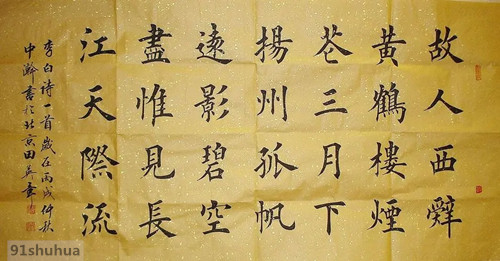 故人西辭
黃鶴樓煙
花三月下
揚州孤帆
遠影碧空
盡惟見長
江天際流
李白詩一首歲在丙戌仲秋
中瀚書於北京田英章
91shuhua